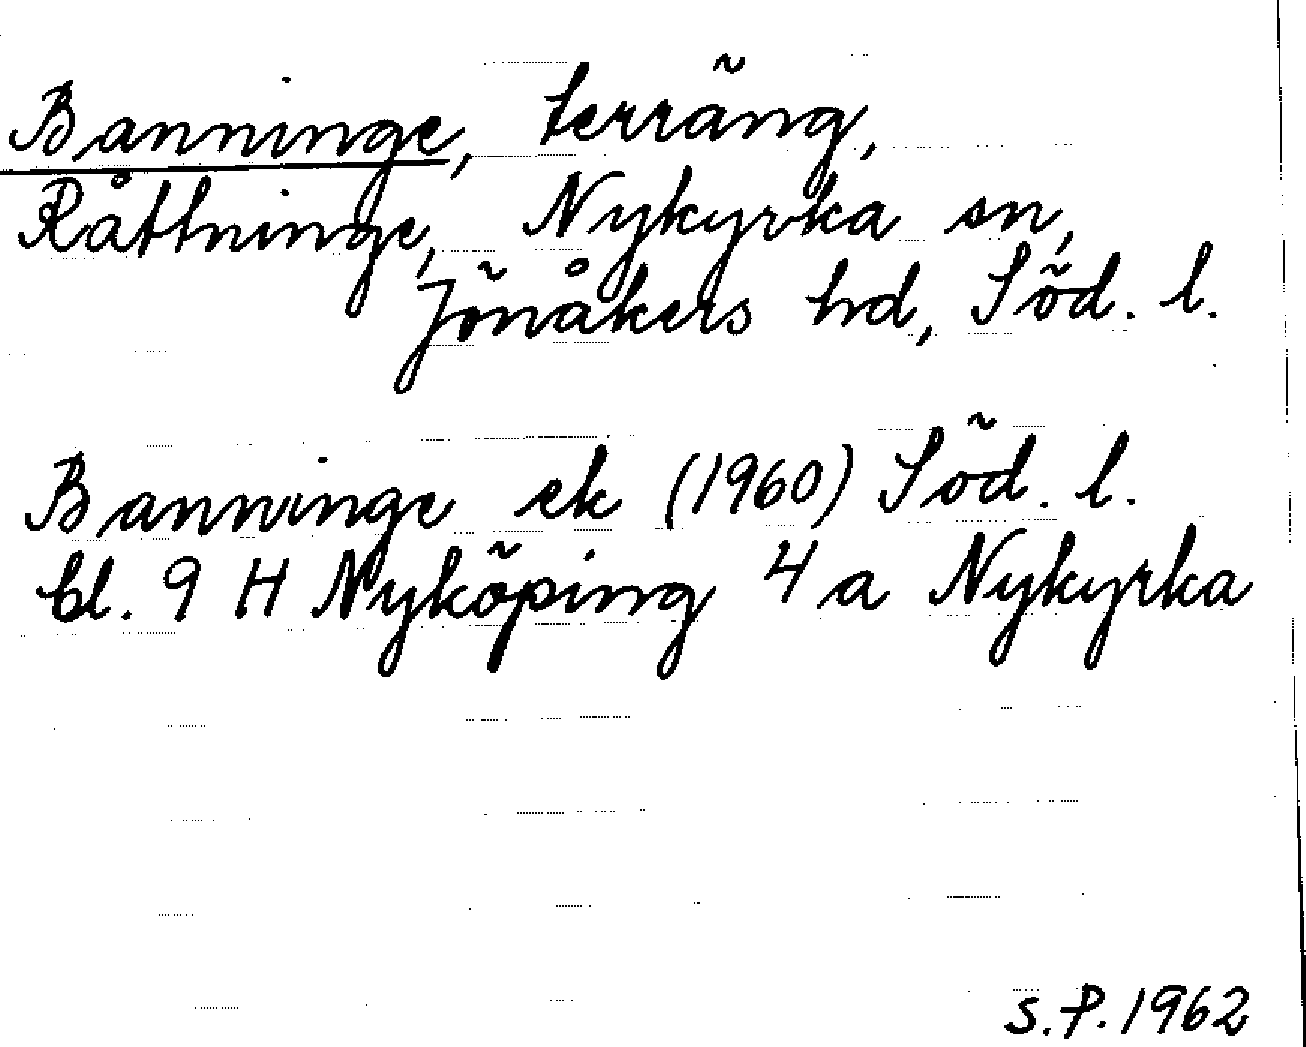 Banninge, terräng,
Råttninge, Nykyrka sn,
Jönåkers hd, Söd. l.
Banninge ek (1960) Söd. l.
bl. 9 H Nyköping 4 a Nykyrka
S.P. 1962